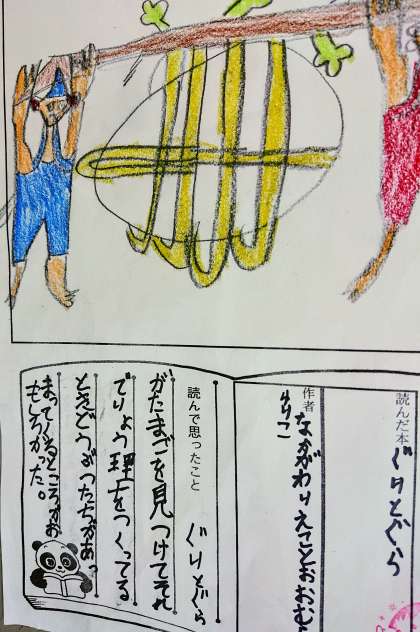 読んだ本 ぐりとぐら
作者 なかがわりえことおおむら
ゆりこ
読んで思ったこと ぐりとぐら
がたまごを見つけてそれ
でりょう理をつくってる
ときどうぶつたちがあっ
まってくるところがお
もしろかった。